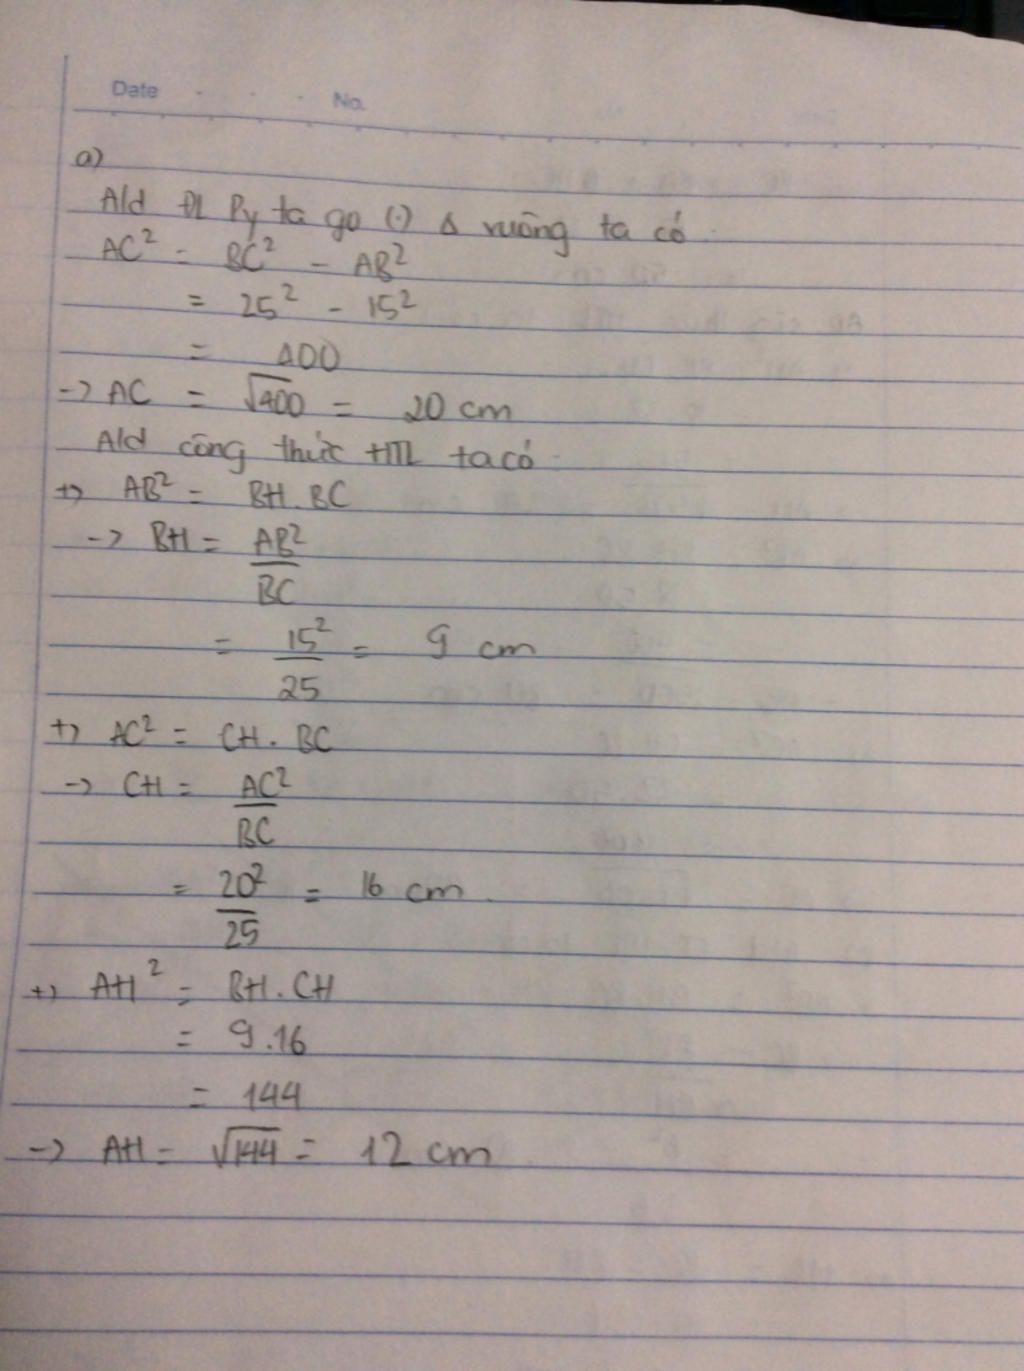 Date . . . No.
a)
Ald ĐL Py ta go (.) Δ vuông ta có
AC² = BC² - AB²
= 25² - 15²
= 400
-> AC = √400 = 20 cm
Ald công thức HTL ta có
+> AB² = BH.BC
-> BH = AB²/BC
= 15²/25 = 9 cm
+> AC² = CH.BC
-> CH = AC²/BC
= 20²/25 = 16 cm
+> AH² = BH.CH
= 9.16
= 144
-> AH = √144 = 12 cm